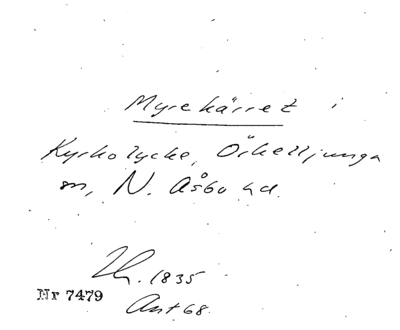 Myrekärret i
Kyrkolycke, Örkelljunga
sn, N. Åsbo hd.
Th. 1835
Nr 7479
Ant 68.